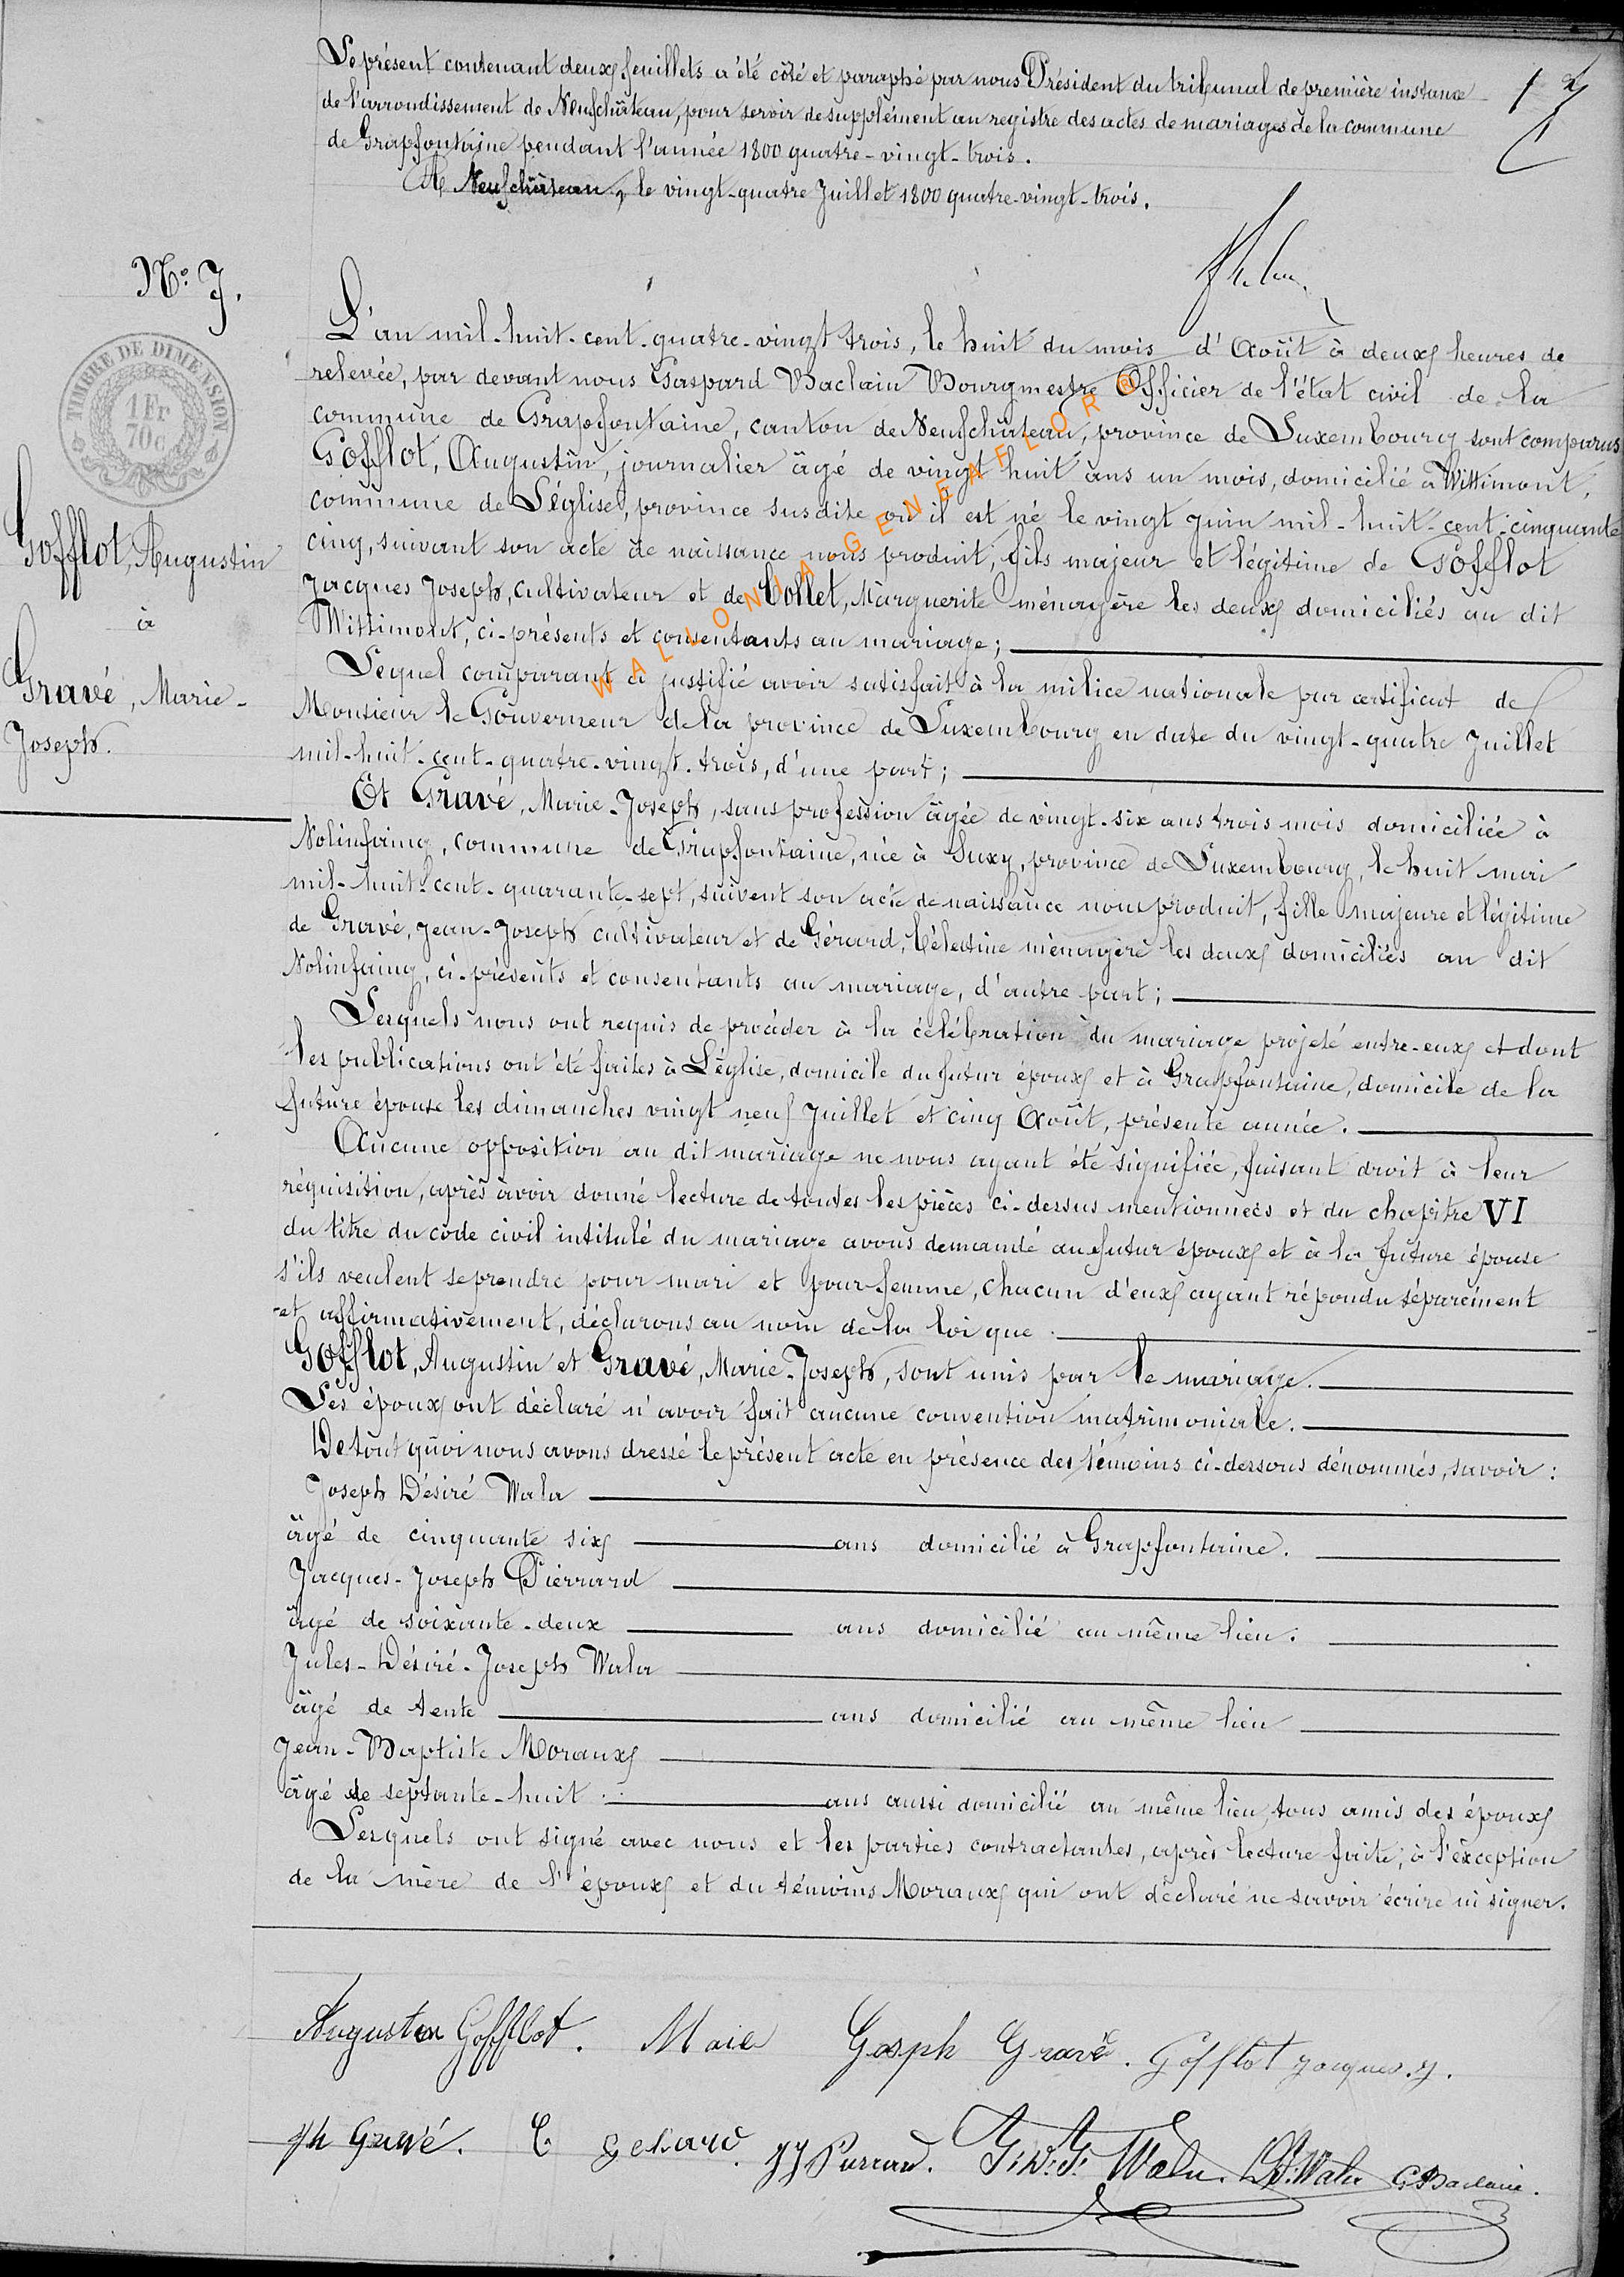 Le présent contenant deux feuillets a été côté et paraphé par nous Président du tribunal de première instance
de l'arrondissement de Neufchâteau, pour servir de supplément au registre des actes de mariages de la commune
de Grapfontaine pendant l'année 1800 quatre-vingt-trois.
A Neufchâteau, le vingt-quatre Juillet 1800 quatre-vingt-trois.
N° 7.
TIMBRE DE DIMENSION
1 Fr
70c
Gofflot, Augustin
à
Gravé, Marie-
Joseph.
L'an mil-huit-cent-quatre-vingt trois, le huit du mois d'Août à deux heures de
relevée, par devant nous Gaspard Baclain Bourgmestre Officier de l'état civil de la
commune de Grapfontaine, canton de Neufchâteau, province de Luxembourg sont comparus
Gofflot, Augustin, journalier âgé de vingt huit ans un mois, domicilié à Wittimont,
commune de Léglise, province susdite où il est né le vingt Juin mil-huit-cent-cinquante
cinq, suivant son acte de naissance nous produit, fils majeur et légitime de Gofflot
Jacques Joseph, cultivateur et de Collet, Marguerite ménagère les deux domiciliés au dit
Wittimont, ci-présents et consentants au mariage;
Lequel comparant a justifié avoir satisfait à la milice nationale par certificat de
Monsieur le Gouverneur de la province de Luxembourg en date du vingt-quatre Juillet
mil-huit-cent-quatre-vingt-trois, d'une part;
Et Gravé, Marie-Joseph, sans profession âgée de vingt-six ans trois mois domiciliée à
Nolinfaing, commune de Grapfontaine, née à Suxy, province de Luxembourg, le huit mai
mil-huit-cent-quarante-sept, suivent son acte de naissance nous produit, fille majeure et légitime
de Gravé, Jean-Joseph cultivateur et de Gérard, Célestine ménagère les deux domiciliés au dit
Nolinfaing, ci-présents et consentants au mariage, d'autre part;
Lesquels nous ont requis de procéder à la célébration du mariage projeté entre-eux et dont
les publications ont été faites à Léglise, domicile du futur époux et à Grapfontaine, domicile de la
future épouse les dimanches vingt neuf Juillet et cinq Août, présente année.
Aucune opposition au dit mariage ne nous ayant été signifiée, faisant droit à leur
réquisition, après avoir donné lecture de toutes les pièces ci-dessus mentionnées et du chapitre VI
du titre du code civil intitulé du mariage avons demandé au futur époux et à la future épouse
s'ils veulent se prendre pour mari et pour femme, chacun d'eux ayant répondu séparément
et affirmativement, déclarons au nom de la loi que
Gofflot, Augustin et Gravé, Marie-Joseph, sont unis par le mariage.
Les époux ont déclaré n'avoir fait aucune convention matrimoniale.
De tout quoi nous avons dressé le présent acte en présence des témoins ci-dessous dénommés, savoir:
Joseph Désiré Wala
âgé de cinquante six ans domicilié à Grapfontaine.
Jacques-Joseph Pierrard
âgé de soixante-deux ans domicilié au même lieu.
Jules-Désiré-Joseph Wala
âgé de tente ans domicilié au même lieu
Jean-Baptiste Moraux
âgé de septante-huit ans aussi domicilié au même lieu, tous amis des époux
Lesquels ont signé avec nous et les parties contractantes, après lecture faite, à l'exception
de la mère de l'époux et du témoins Moraux qui ont déclaré ne savoir écrire ni signer.
Augustin Gofflot. Marie Gosph Gravé. Gofflot Jacques. J.
Jh Gravé. C gerard. JJ Pierrard. J. D. J. Wala. Wala G Baclain.
WALLONIA-GENEAFLOR ®